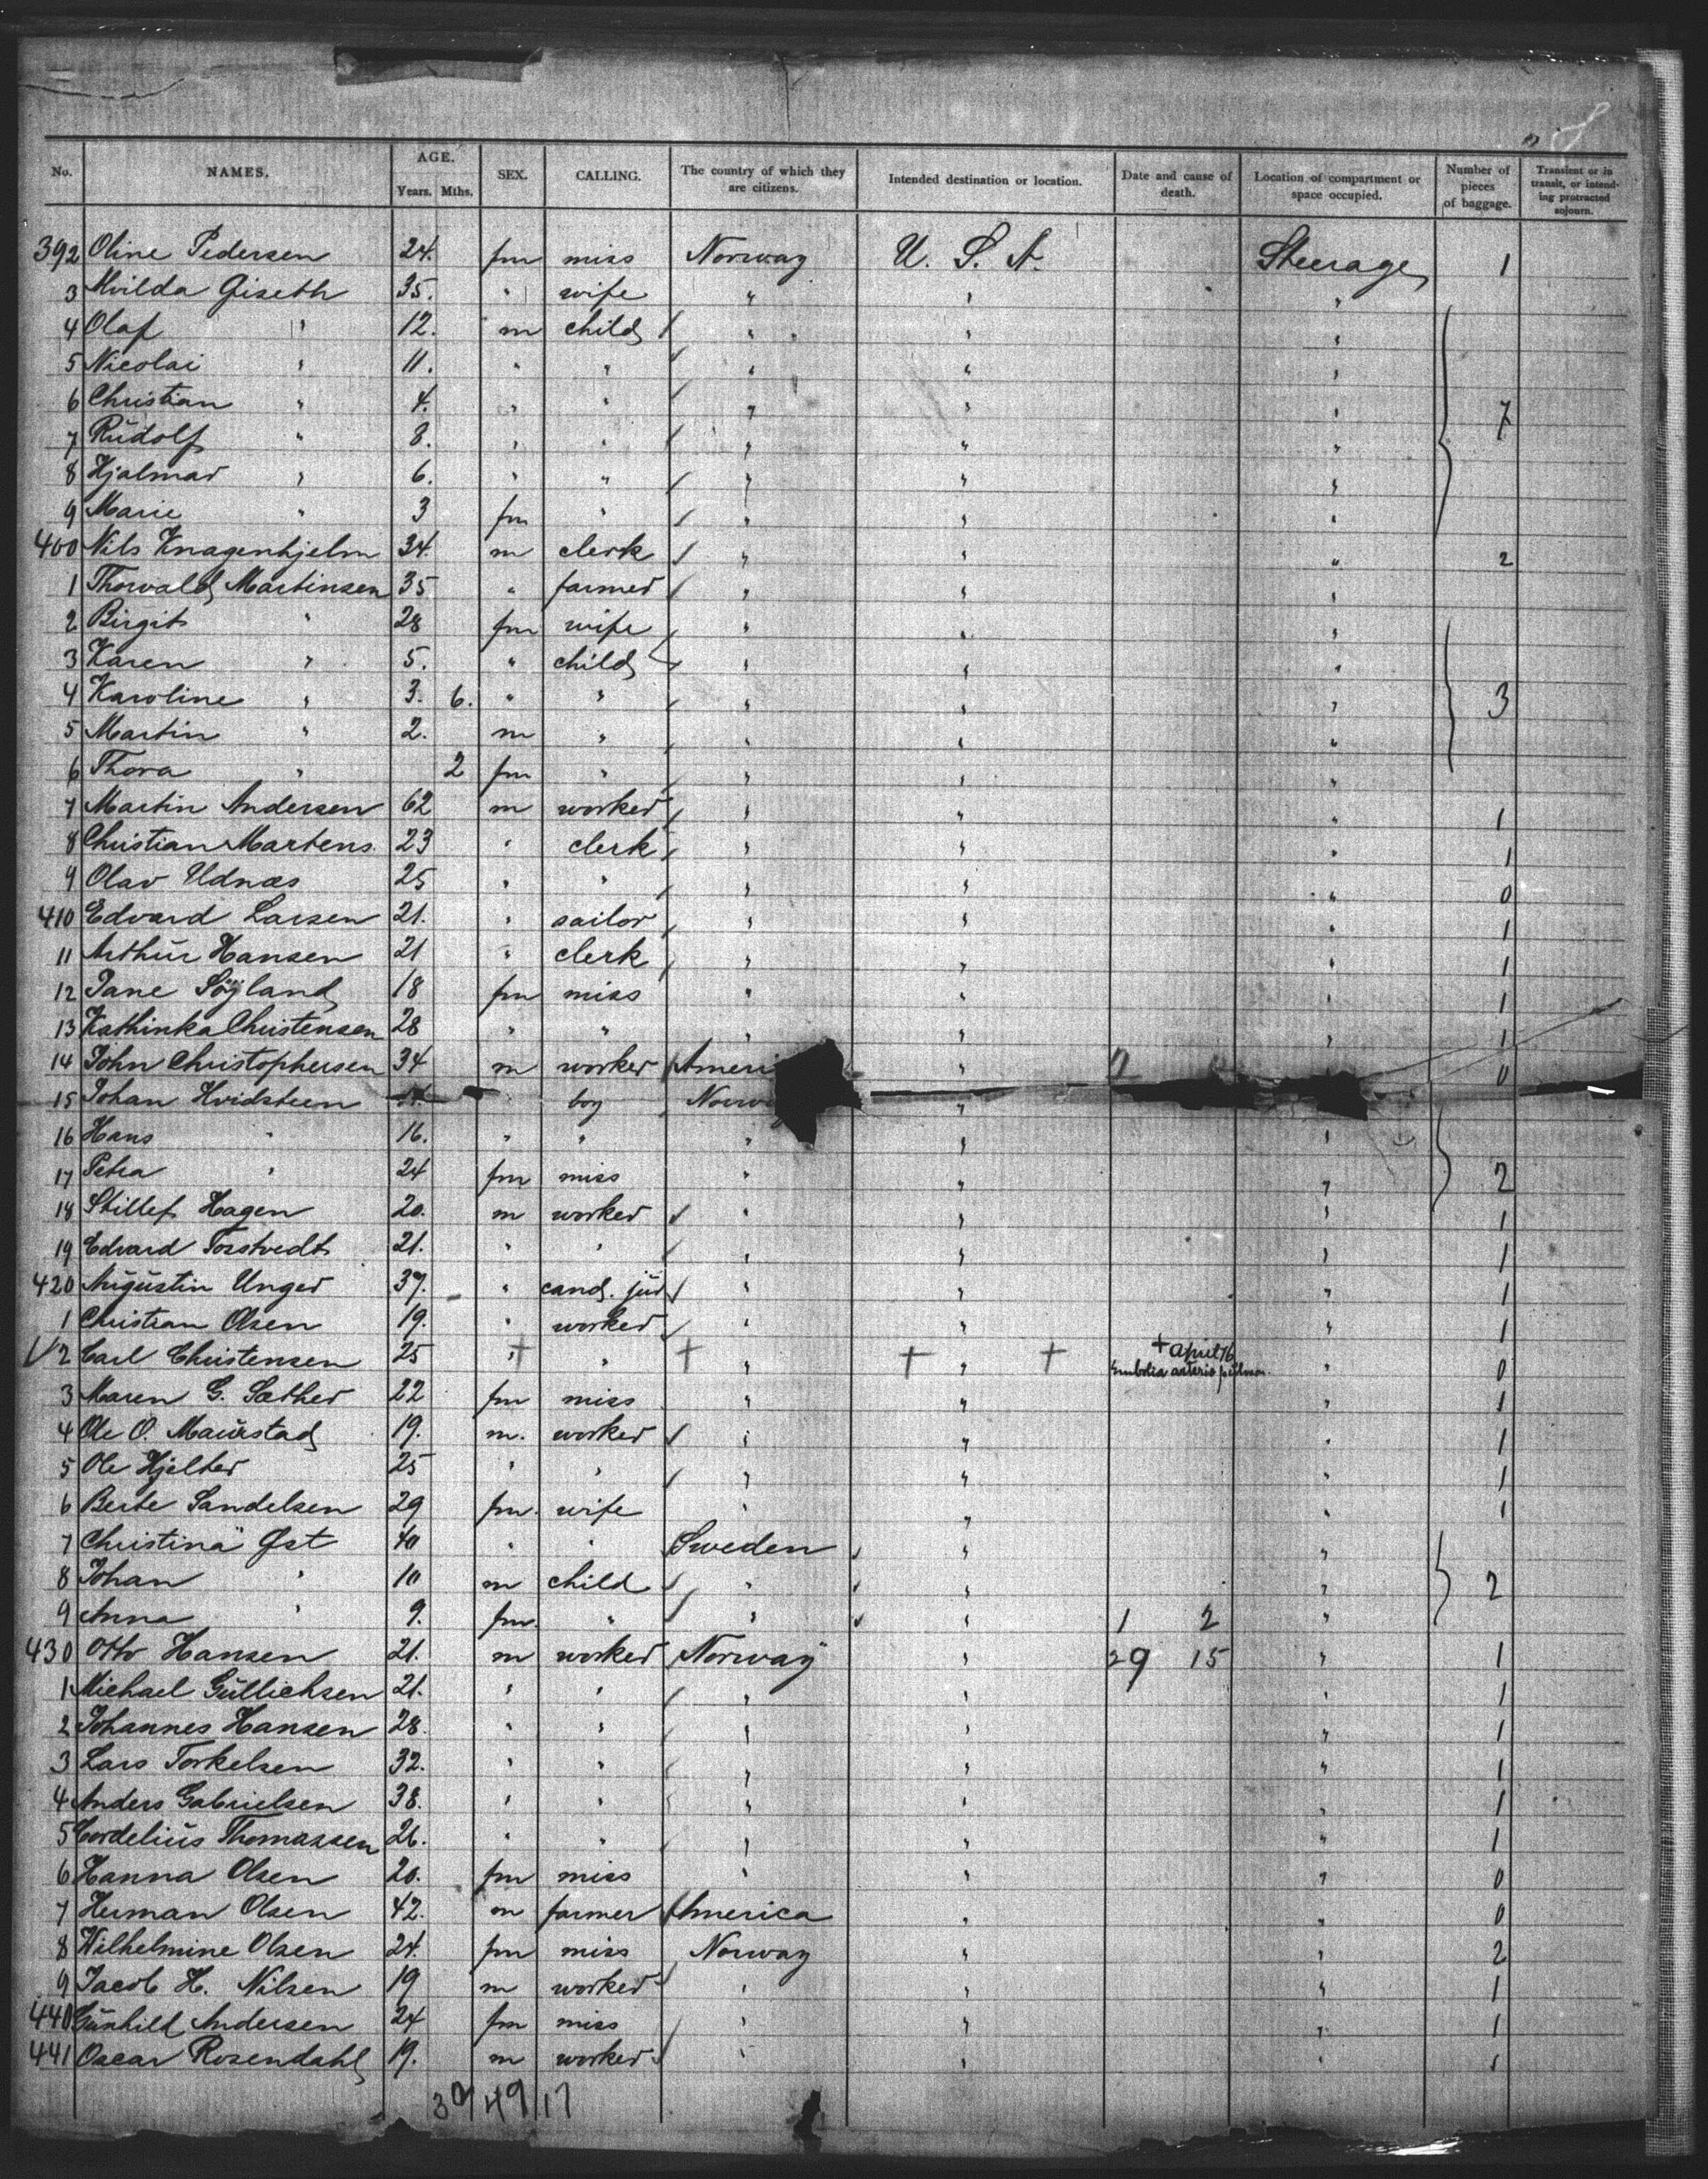 8
No. NAMES. AGE. Years. Mths. SEX. CALLING. The country of which they are citizens. Intended destination or location. Date and cause of death. Location of compartment or space occupied. Number of pieces of baggage. Transient or in transit, or intending protracted sojourn.
392 Oline Pedersen 24. fm miss Norway U. S. A. Steerage 1
3 Milda Giseth 35. " wife " " "
4 Olaf " 12. m child " " "
5 Nicolai " 11. " " " " "
6 Christian " 4. " " " " " 7
7 Rudolf " 8. " " " " "
8 Hjalmar " 6. " " " " "
9 Marie " 3 fm " " " "
400 Nils Knagenhjelm 34. m clerk " " " 2
1 Thorvald Martinsen 35 " farmer " " "
2 Birgit " 28 fm wife " " "
3 Karen " 5. " child " " "
4 Karoline " 3. 6. " " " " " 3
5 Martin " 2. m " " " "
6 Thora " 2 fm " " " "
7 Martin Andersen 62 m worker " " " 1
8 Christian Martens 23 " clerk " " " 1
9 Olav Udnæs 25 " " " " " 0
410 Edvard Larsen 21. " sailor " " " 1
11 Arthur Hansen 21 " clerk " " " 1
12 Jane Söyland 18 fm miss " " " 1
13 Kathinka Christensen 28 " " " " " 1
14 John Christophersen 34 m worker Ameri " 0
15 Johan Hvidsteen boy Norw "
16 Hans " 16. " " " " "
17 Petra " 24 fm miss " " " 2
18 Stillef Hagen 20. m worker " " " 1
19 Edvard Torstvedt 21. " " " " " 1
420 Augustin Unger 37. " cand. jur " " " 1
1 Christian Olsen 19. " worker " " " 1
2 Carl Christensen 25 " " " " + April 16 " 0
Embolia arterio pulmon.
3 Maren G. Sæther 22 fm miss " " " 1
4 Ole O. Maurstad 19. m. worker " " " 1
5 Ole Hjelter 25 " " " " " 1
6 Berte Sandelsen 29 fm. wife " " " 1
7 Christina Öst 40 " " Sweden " "
8 Johan " 10 m child " " " 2
9 Anna " 9. fm. " " " 1 2 "
430 Otto Hansen 21. m worker Norway " 29 15 " 1
1 Michael Gullichsen 21. " " " " " 1
2 Johannes Hansen 28. " " " " " 1
3 Lars Torkelsen 32. " " " " " 1
4 Anders Gabrielsen 38. " " " " " 1
5 Cordelius Thomassen 26. " " " " " 1
6 Hanna Olsen 20. fm miss " " " 0
7 Herman Olsen 42. m farmer America " " 0
8 Wilhelmine Olsen 24. fm miss Norway " " 2
9 Jacob H. Nilsen 19 m worker " " " 1
440 Gunhild Andersen 24 fm miss " " " 1
441 Oscar Rosendahl 19. m worker " " " 1